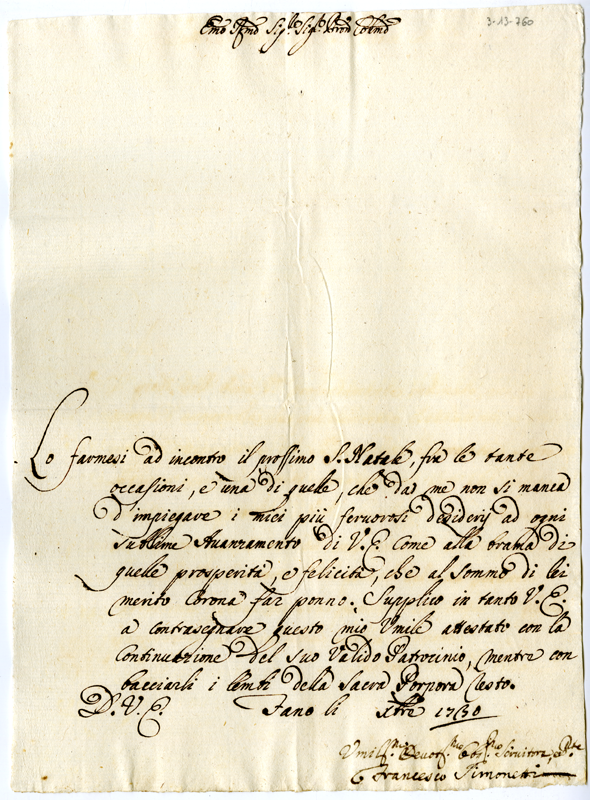 3-13-760
Emo Rmo Sigre Sigre Pron Colmo
Lo farmesi ad incontro il prossimo S. Natale, fra le tante
occasioni, e una di quelle, che da me non si manca
d'impiegare i miei più feruorosi desiderij ad ogni
sublime Auanzamento di V.E. Come alla brama di
quelle prosperità, e felicità, che al sommo di lei
merito Corona far ponno. Supplico in tanto V.E.
a contrasegnare questo mio Vmile attestato con la
Continuazione del suo Valido Patrocinio, mentre con
bacciarli i lembi della Sacra Porpora resto.
D. V. E. Fano li Xbre 1730
Vmilmo Devotmo Obmo Servitore,
Francesco Simonetti